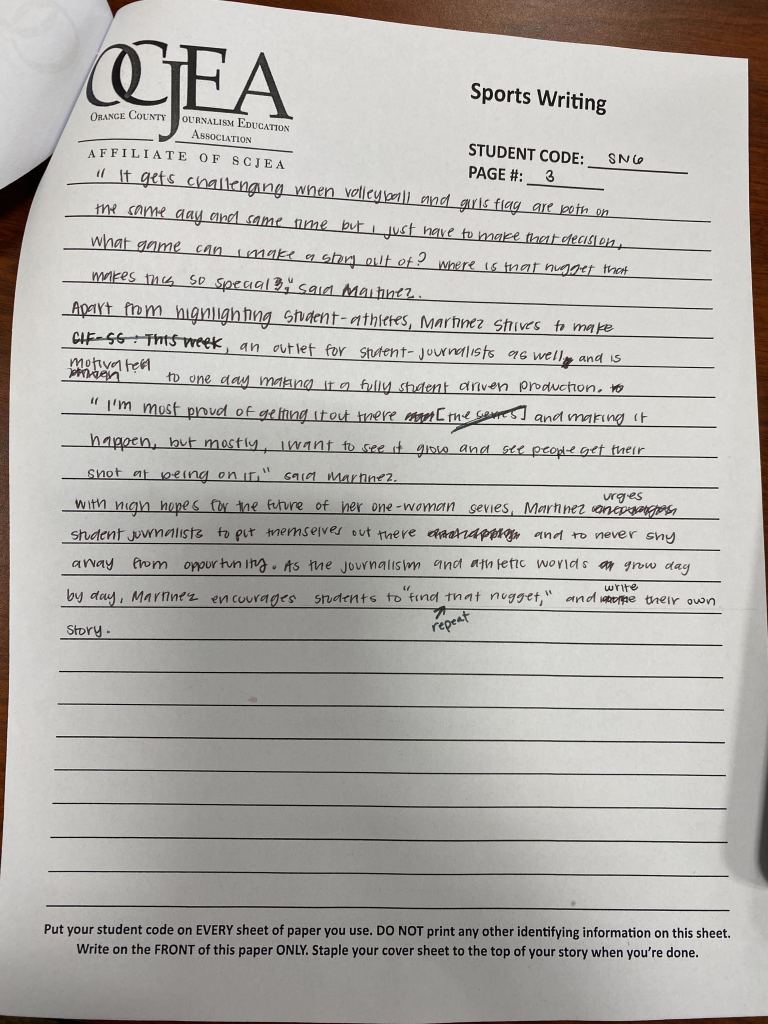 OCJEA
ORANGE COUNTY JOURNALISM EDUCATION
ASSOCIATION
AFFILIATE OF SCJEA
Sports Writing
STUDENT CODE: SN6
PAGE #: 3
"It gets challenging when volleyball and girls flag are both on
the same day and same time but i just have to make that decision,
what game can i make a story out of? where is that nugget that
makes this so special?," said Martinez.
Apart from highlighting student-athletes, Martinez strives to make
CIF-SS: This Week, an outlet for student-journalists as well, and is
motivated
to one day making it a fully student driven production.
"I'm most proud of getting it out there [the series] and making it
happen, but mostly, i want to see it grow and see people get their
shot at being on it," said Martinez.
urges
with high hopes for the future of her one-woman series, Martinez encourages
student journalists to put themselves out there and to never shy
away from opportunity. As the journalism and athletic worlds grow day
write
by day, Martinez encourages students to "find that nugget," and their own
repeat
story.
Put your student code on EVERY sheet of paper you use. DO NOT print any other identifying information on this sheet.
Write on the FRONT of this paper ONLY. Staple your cover sheet to the top of your story when you're done.